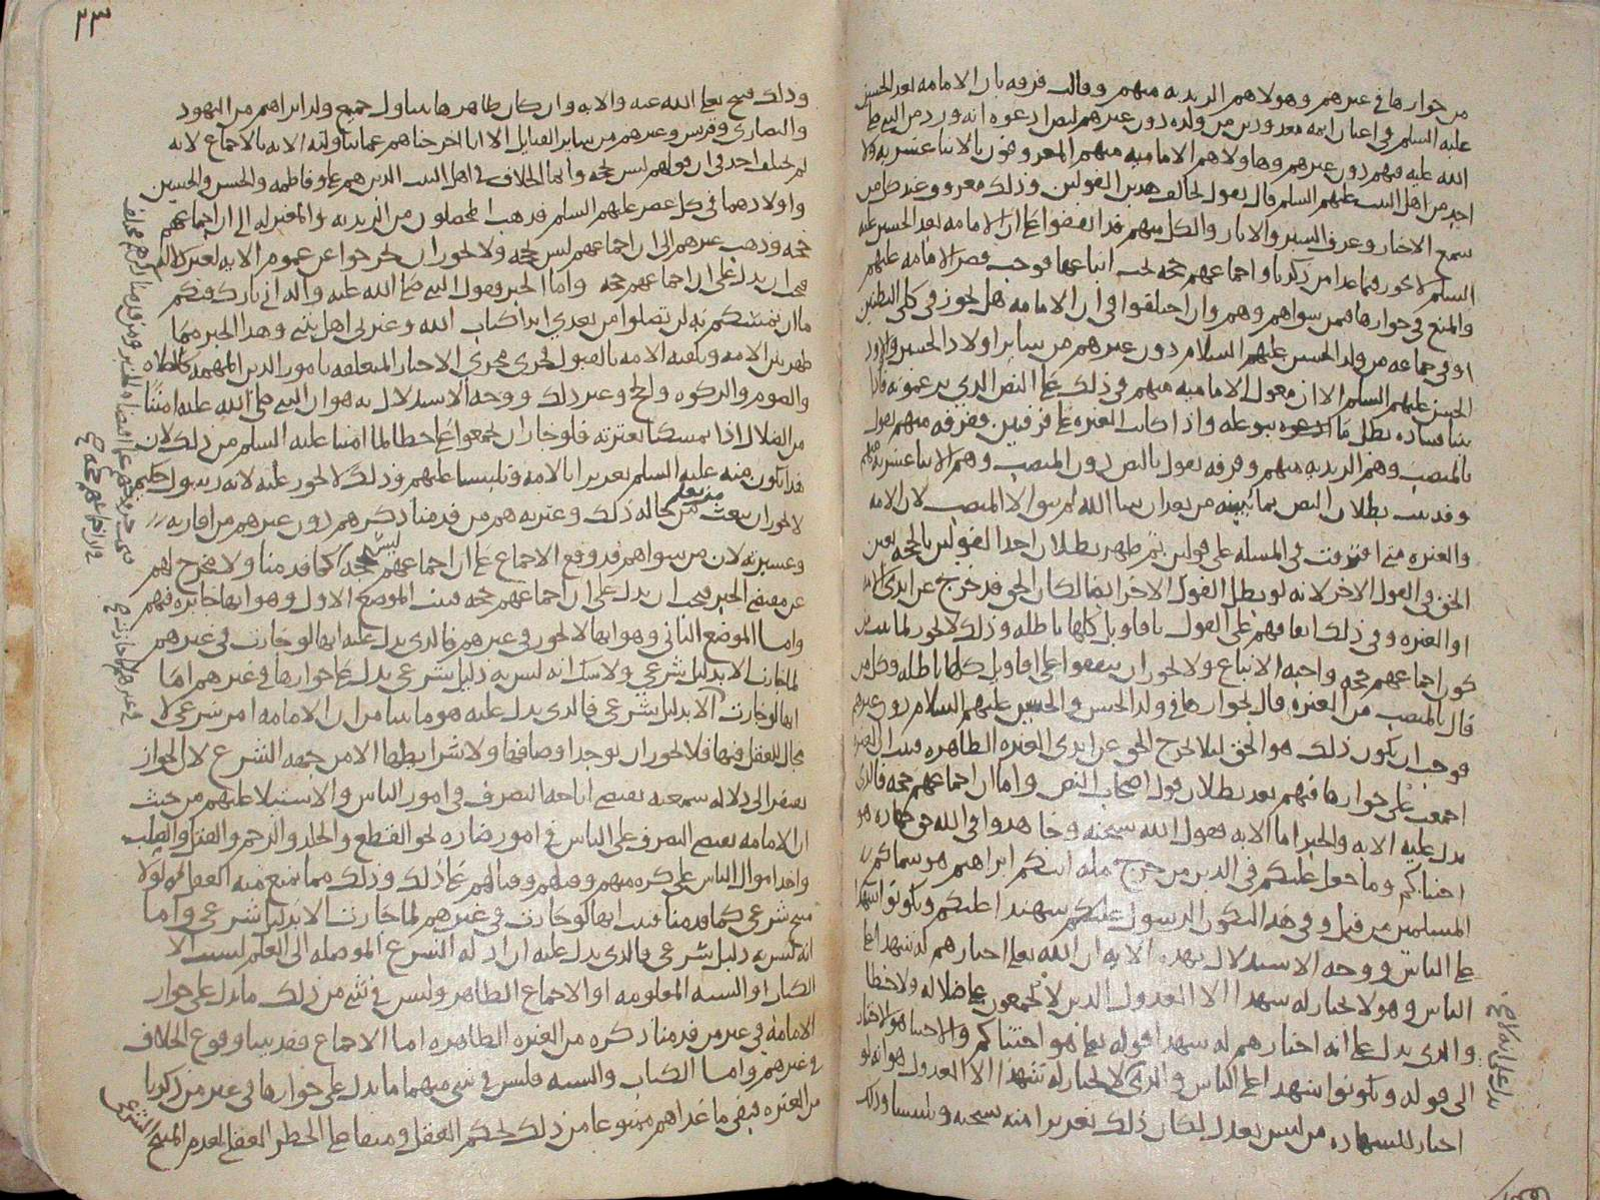 من جوازها في غيرهم وهولاهم الزيديه منهم وقالت فرقه بان الامامه بعد الحسين
عليه السلم في اعيان ايمه معدودين من ولده دون غيرهم لنص ادعوه انه ورد من النبي صلى
الله عليه فيهم دون غيرهم وهاولاهم الاماميه منهم المعروفون بالاثنا عشريه ولا
احد من اهل البيت عليهم السلم قال بقول يخالف هذين القولين وذلك معروف عند من
سمع الاخبار وعرف السير والاثار والكل منهم قد اتفقوا على ان الامامه بعد الحسين عليه
السلم لا تجوز فيما عدا من ذكرنا واجماعهم حجه يجب اتباعها فوجب قصر الامامه عليهم
والمنع في جوازها فيمن سواهم وهم وان اختلفوا في ان الامامه هل تجوز في كلى البطنين
او في جماعه من ولد الحسين عليهم السلام دون غيرهم من ساير اولاد الحسين واولاد
الحسن عليهم السلم الا ان معول الاماميه منهم في ذلك على النص الذي يدعونه فاذا
بينا فساده بطل ما ادعوه بنوه عليه واذا كانت العتره على فرقتين ففرقه منهم تقول
بالمنصب وهم الزيديه منهم وفرقه تقول بالنص دون المنصب وهم الاثنا عشريه منهم
وقد ثبت بطلان النص بما نبينه من بعد ان شا الله لم يبق الا المنصب لان الامه
والعتره متى افترقت في المسله على قولين ثم ظهر بطلان احد القولين بالحجه تعين
الحق في القول الاخر لانه لو بطل القول الاخر ايضا لكان الحق قد خرج عن ايدي الامه
او العتره وفي ذلك اتفاقهم على القول باقاويل كلها باطله وذلك لا يجوز لما ثبت من
كون اجماعهم حجه واجبه الاتباع ولا يجوز ان يتفقوا على اقاويل كلها باطله وكل من
قال بالمنصب من العتره قال بجوازها في ولد الحسن والحسين عليهم السلام دون غيرهم
فوجب ان يكون ذلك هو الحق ليلا يخرج الحق عن ايدي العتره الطاهره فثبت ان العتره
اجمعت على جوازها فيهم بعد بطلان قول اصحاب النص واما ان اجماعهم حجه فالذي
يدل عليه الايه والخبر اما الايه فقول الله سبحنه وجاهدوا في الله حق جهاده هو
اجتباكم وما جعل عليكم في الدين من حرج مله ابيكم ابراهيم هو سماكم
المسلمين من قبل وفي هذا ليكون الرسول عليكم شهيدا عليكم وتكونوا شهدا
على الناس ووجه الاستدلال بهذه الايه ان الله تعلى اختارهم له شهدا على
الناس وهو لا يختار له شهدا الا العدول الذين لا يجمعون على ضلاله ولا خطا
والذي يدل على انه اختارهم له شهدا قوله تعلى هو اجتباكم والاجتبا هو الاختيار
الى قوله وتكونوا شهدا على الناس والذي لا يختار له شهدا الا العدول هو انه لو
اختار للشهاده من ليس بعدل لكان ذلك تغريرا منه سبحنه وتلبيسا وذلك
يدل على انه لا
٢٣
وذلك قبيح تعلى الله عنه والايه وان كان ظاهرها يتناول جميع ولد ابراهيم من اليهود
والنصارى وقريش وغيرهم من ساير القبايل الا انا اخرجناهم عما تناولته الايه بالاجماع لانه
لم يختلف احد في ان قولهم ليس بحجه وانما الخلاف في اهل البيت الذين هم علي وفاطمه والحسن والحسين
واولادهما في كل عصر عليهم السلم فذهب المحصلون من الزيديه والمعتزله الى ان اجماعهم
حجه وذهب غيرهم الى ان اجماعهم ليس بحجه ولا يجوز ان يخرجوا عن عموم الايه لغير دلاله
فيجب ان يدل على ان اجماعهم حجه واما الخبر فقول النبي صلى الله عليه واله اني تارك فيكم
ما ان تمسكتم به لن تضلوا من بعدي ابدا كتاب الله وعترتي اهل بيتي وهذا الخبر مما
ظهر بين الامه وتلقته الامه بالقبول فجرى مجرى الاخبار المتعلقه بامور الدين المهمه كالصلاه
والصوم والزكوه والحج وغير ذلك ووجه الاستدلال به هو ان النبي صلى الله عليه امننا
من الضلال اذا تمسكنا بعترته فلو جاز ان يجمعوا على خطا لما امننا عليه السلم من ذلك لان
هذا يكون منه عليه السلم تغريرا بالامه وتلبيسا عليهم وذلك لا يجوز عليه لانه رسول حكيم
لا يجوز ان يبعث من يعلم من حاله ذلك وعترته هم من قدمنا ذكرهم دون غيرهم من اقاربه
وعشيرته لان من سواهم قد وقع الاجماع على ان اجماعهم ليس بحجه كما قدمنا ولا مخرج لهم
عن مقتضى الخبر فيجب ان يدل على ان اجماعهم حجه فثبت الموضع الاول وهو انها جايزه فيهم
واما الموضع الثاني وهو انها لا تجوز في غيرهم فالذي يدل عليه انها لو جازت في غيرهم
لما جازت الا بدليل شرعي ولا شك انه ليس به دليل شرعي يدل على جوازها في غيرهم اما
انها لو جازت الا بدليل شرعي فالذي يدل عليه هو ما بينا من ان الامامه امر شرعي لا
مجال للعقل فيها فلا يجوز ان توجد اوصافها ولا شرايطها الا من جهه الشرع لان الجواز
يفتقر الى دلاله سمعيه تقتضي اباحه التصرف في امور الناس والاستيلا عليهم من حيث
ان الامامه تقتضي التصرف على الناس في امور ضاره نحو القطع والجلد والرجم والقتل والصلب
واخذ اموال الناس على كره منهم وقتلهم وقتالهم على ذلك وذلك مما يمنع منه العقل لولا
مبيح شرعي كما قدمنا فثبت انها لو جازت في غيرهم لما جازت الا بدليل شرعي واما
انه ليس به دليل شرعي فالذي يدل عليه ان ادله الشرع الموصله الى العلم ليست الا
الكتاب او السنه المعلومه او الاجماع الظاهر وليس في شي من ذلك ما يدل على جواز
الامامه في غير من قدمنا ذكره من العتره الطاهره اما الاجماع فقد بينا وقوع الخلاف
في غيرهم واما الكتاب والسنه فليس في شي منهما ما يدل على جوازها في غير من ذكرنا
من العتره فبقي ما عداهم ممنوعا من ذلك بحكم العقل ومنفيا على الحظر العقلي لعدم المبيح
الشرعي